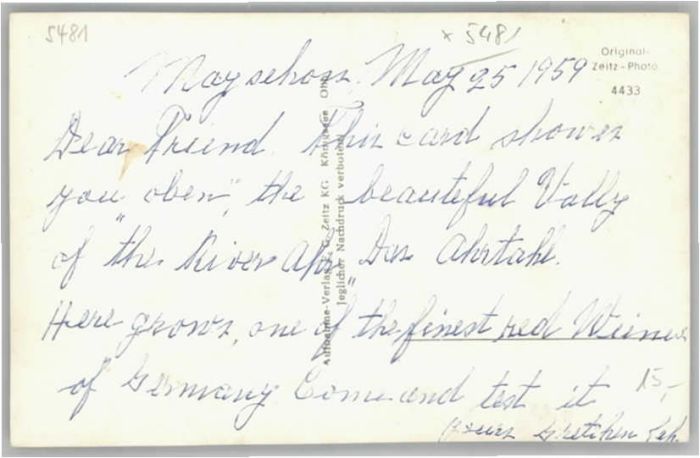 5481
x 5481
Original-
Zeitz-Photo
4433
Mayschoss. May 25 1959
Dear Friend. This card shows
you "oben", the beautiful Vally
of "the River Ahr" Das Ahrtahl.
Here grows, one of the finest red Weines
of Germany Come and test it
15,-
yours Gretchen
Aufnahme-Verlag Zeitz KG Königsee
Jeglicher Nachdruck verboten